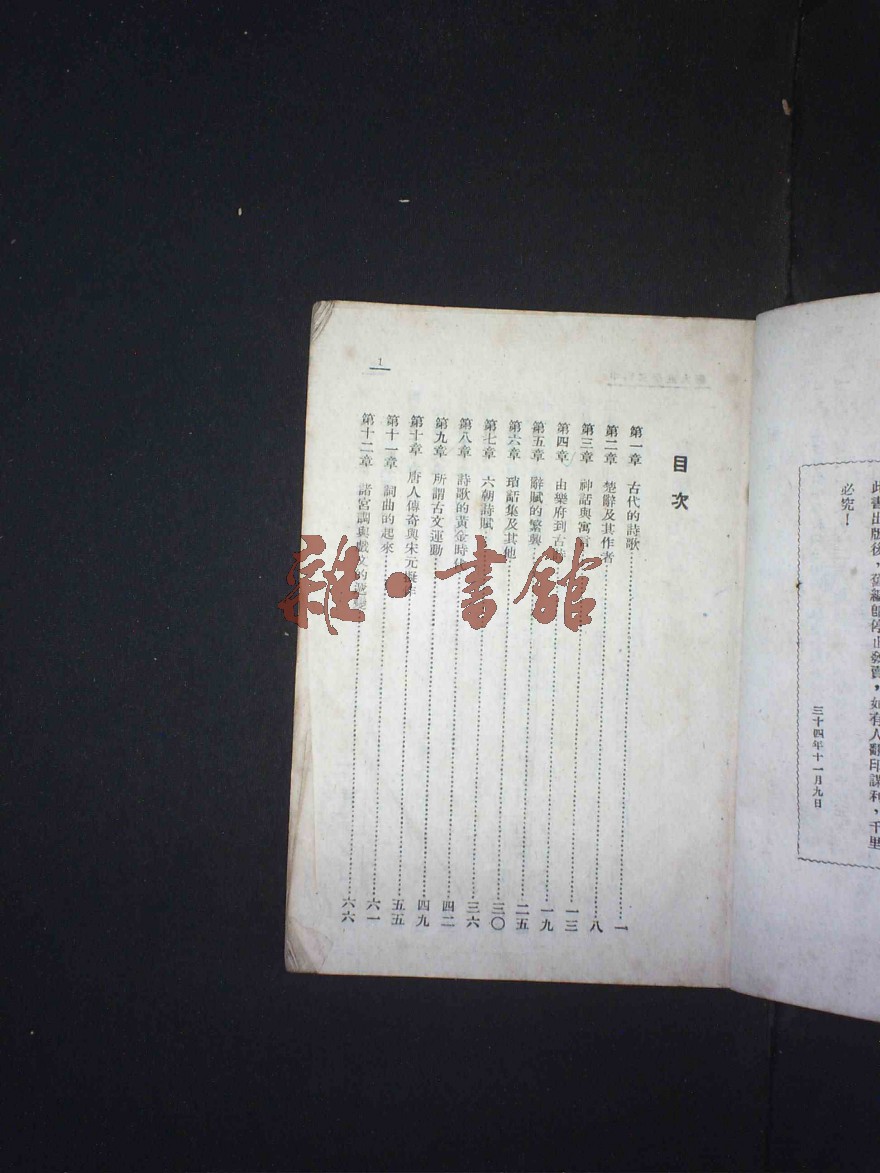 此書出版後，舊編卽停止發賣，如有人翻印謀利，千里
必究！
三十四年十一月九日
目次
第一章 古代的詩歌 一
第二章 楚辭及其作者 八
第三章 神話與寓言 一三
第四章 由樂府到古詩 一九
第五章 辭賦的繁興 二五
第六章 瑣話集及其他 三〇
第七章 六朝詩賦 三六
第八章 詩歌的黃金時代 四二
第九章 所謂古文運動 四九
第十章 唐人傳奇與宋元擬作 五五
第十一章 詞曲的起來 六一
第十二章 諸宮調與戲文的 六六
1
雜·書館